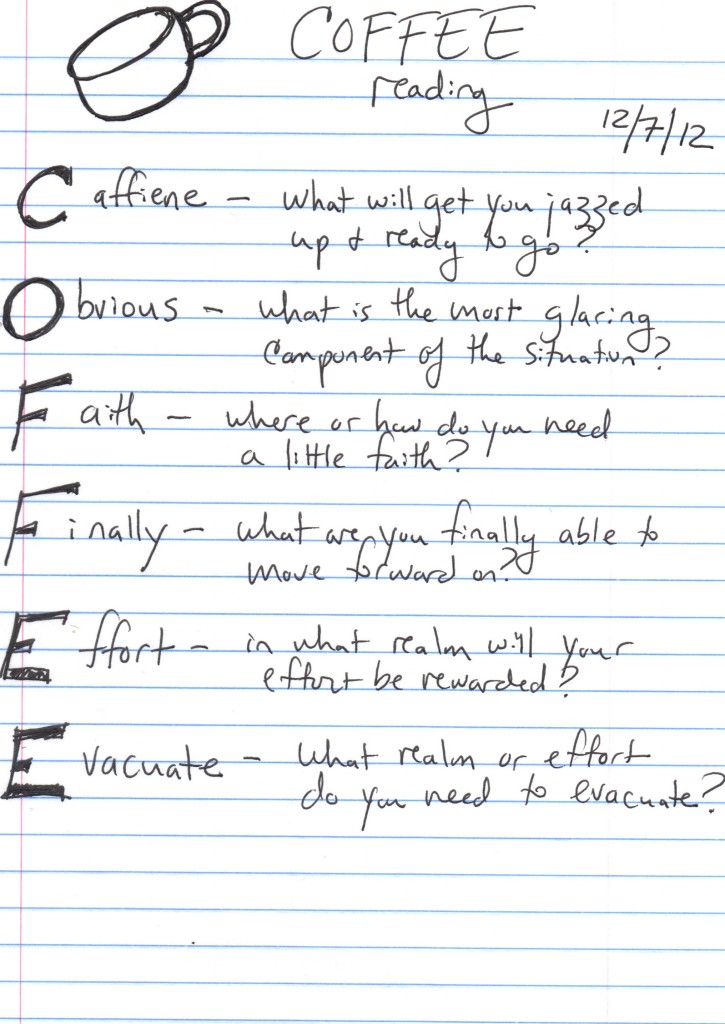 COFFEE
reading
12/7/12
Caffiene - what will get you jazzed
up & ready to go?
Obvious - what is the most glaring
component of the situation?
Faith - where or how do you need
a little faith?
Finally - what are you finally able to
move forward on?
Effort - in what realm will your
effort be rewarded?
Evacuate - What realm or effort
do you need to evacuate?